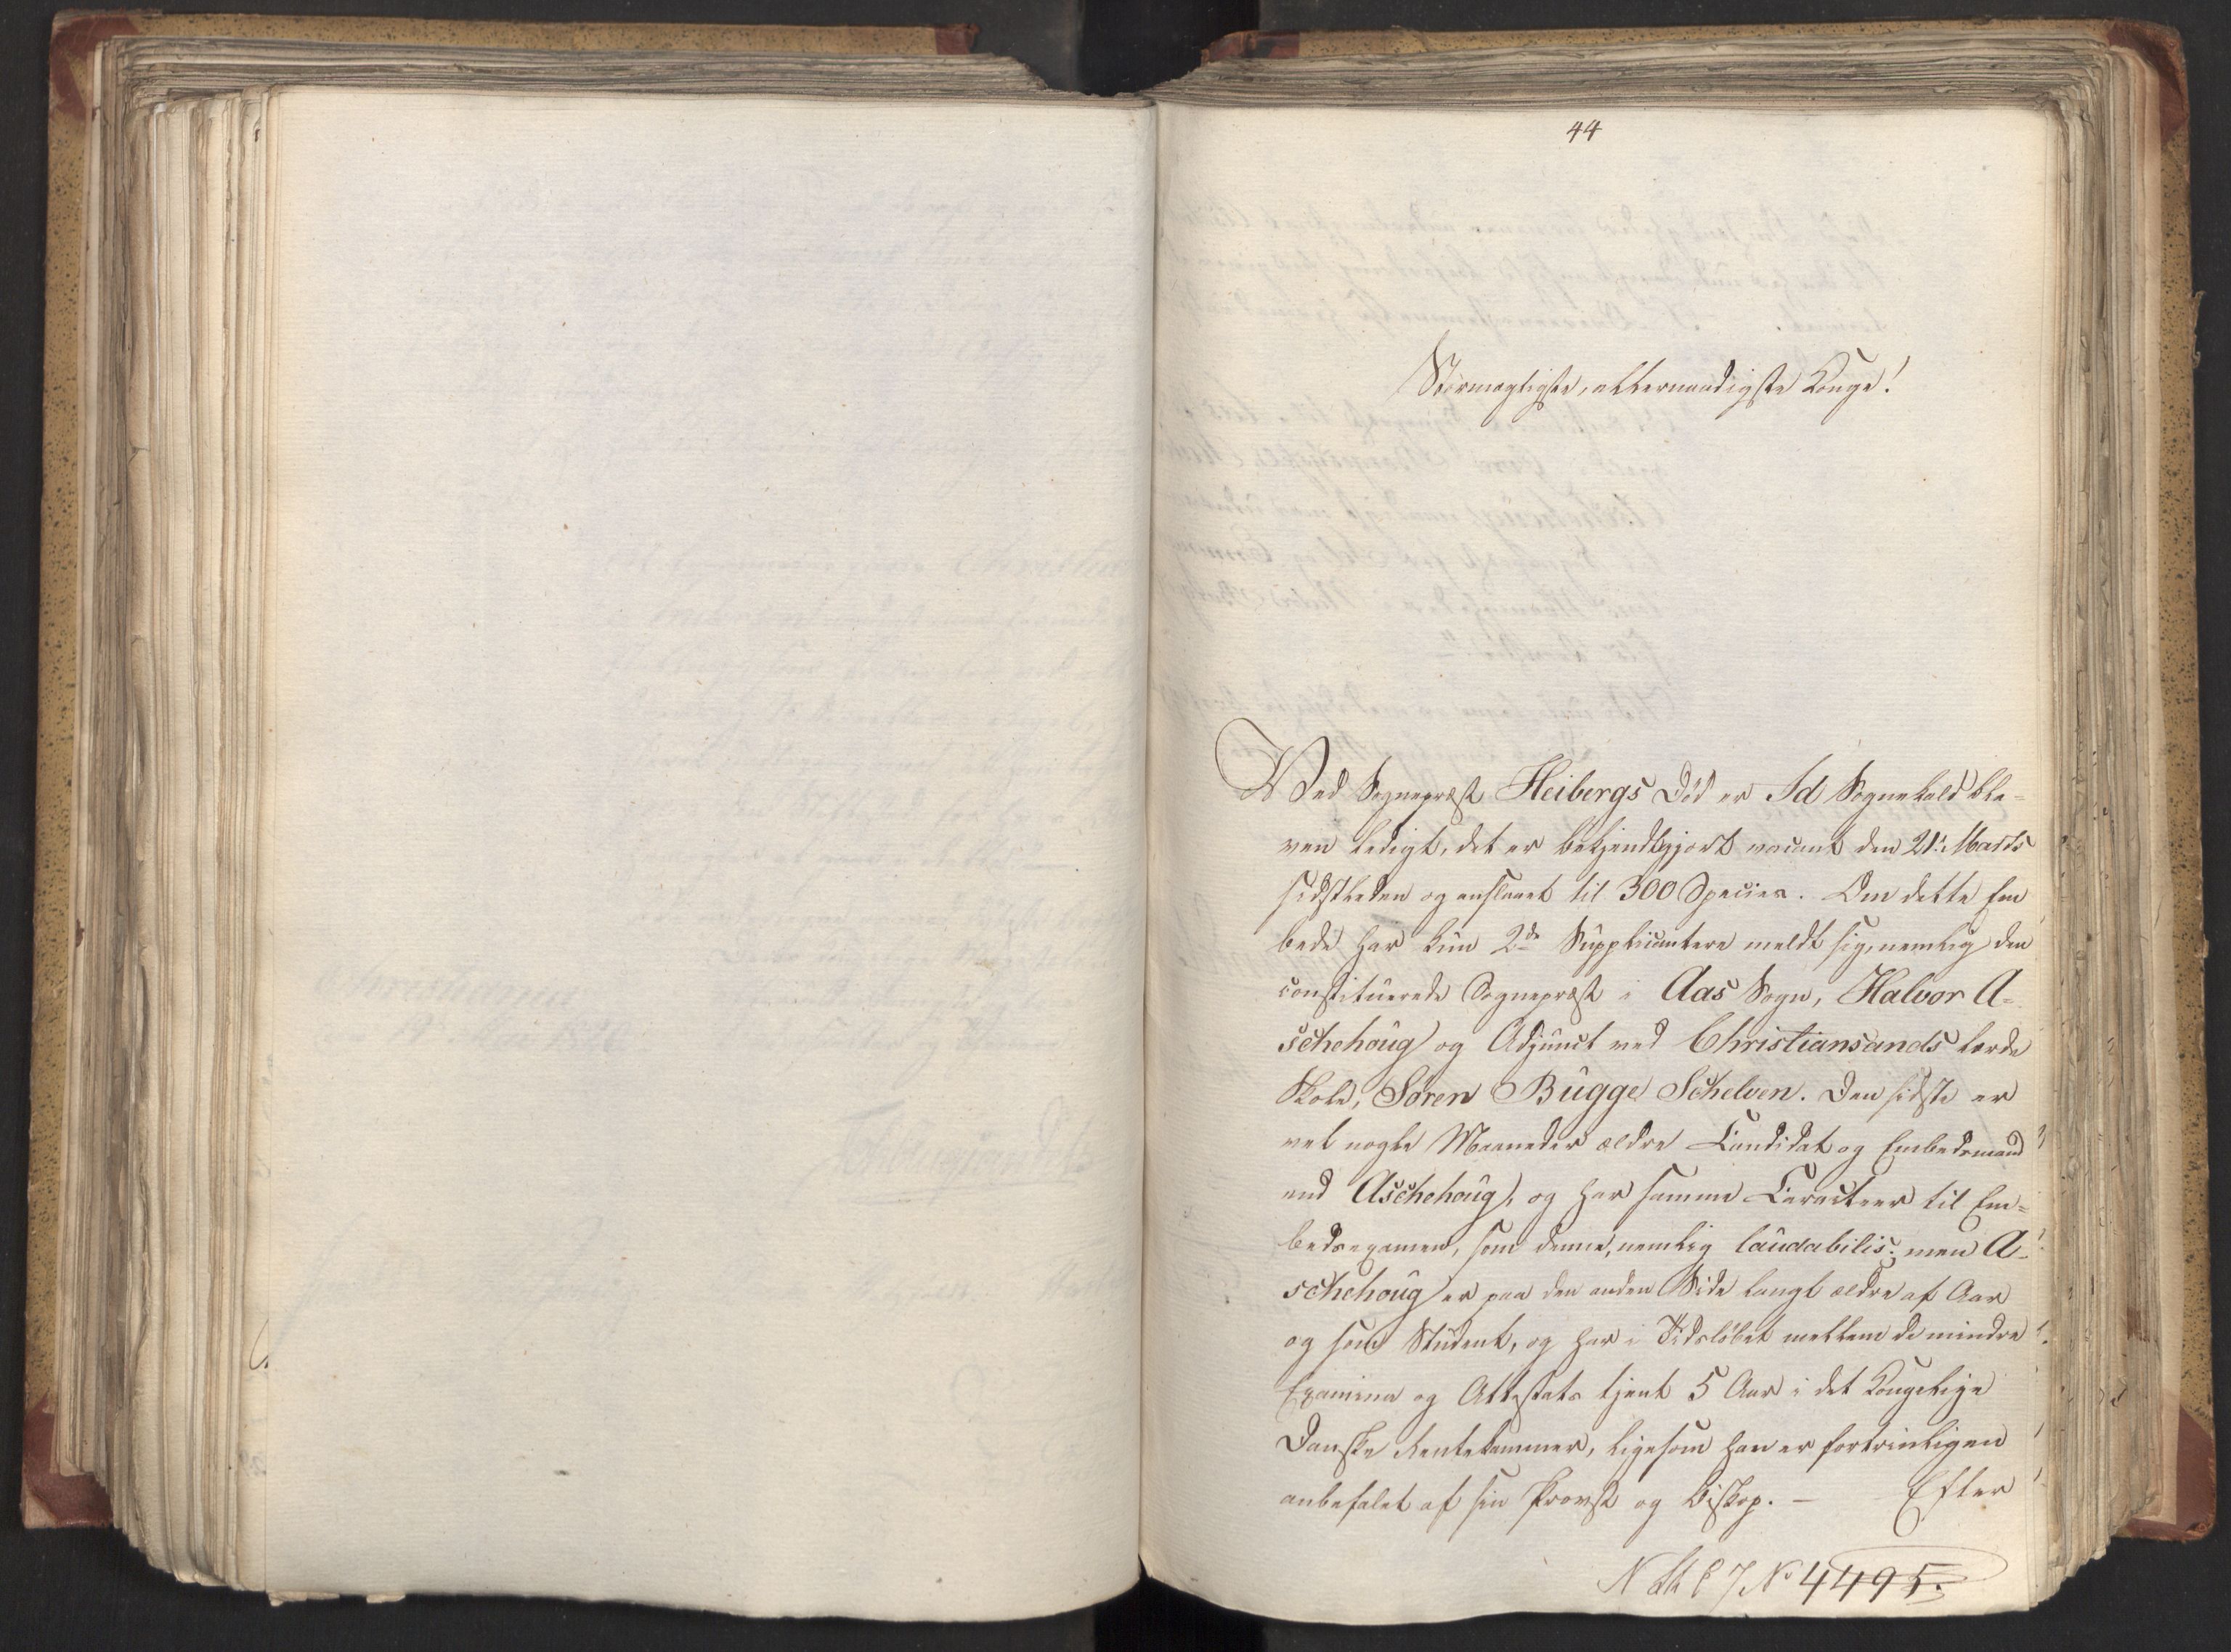 44
Stormægtigste, allernaadigste Konge!
Ved Sognepræst Heibergs Død er Id Sognekald ble-
ven ledigt, det er bekjendtgjort vacant den 21. Marts
sidstleden og anslaaet til 300 Species. Om dette Em
bede har kun 2de Supplicantere meldt sig, nemlig den
constituerede Sognepræst i Aas Sogn, Halvor A-
schehoug og Adjunct ved Christiansands lærde
Skole, Søren Bugge Schelven. Den sidste er
vel nogle Maaneder ældre Candidat og Embedsmand
end Aschehoug, og har samme Caracteer til Em-
bedsexamen, som denne, nemlig laudabilis; men A-
schehoug er paa den anden Side langt ældre af Aar
og som Student, og har i Tidsløbet mellem de mindre
Examina og Attestats tjent 5 Aar i det Kongelige
Danske Rentekammer, ligesom han er fortrinligen
anbefalet af sin Provst og Biskop. — Efter
No 4495.